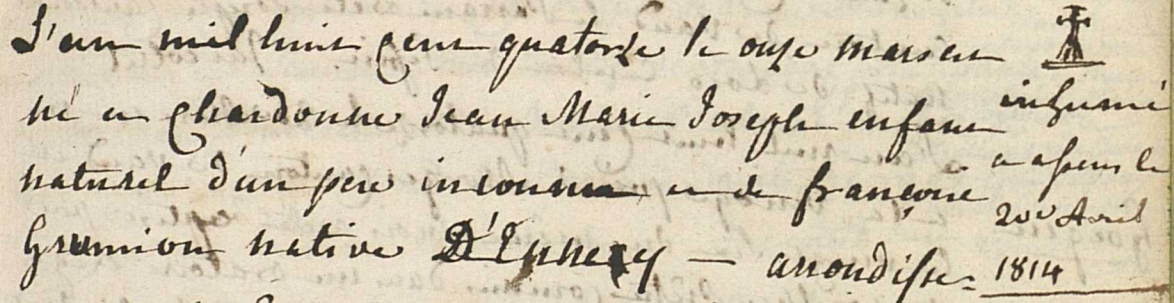 L'an mil huit cent quatorze le onze mars est
né en Chardonne Jean Marie Joseph enfant
naturel d'un pere inconnu et de françoise
native D'Ennery — arrondisse=
inhumé
a assens le
20e Avril
1814